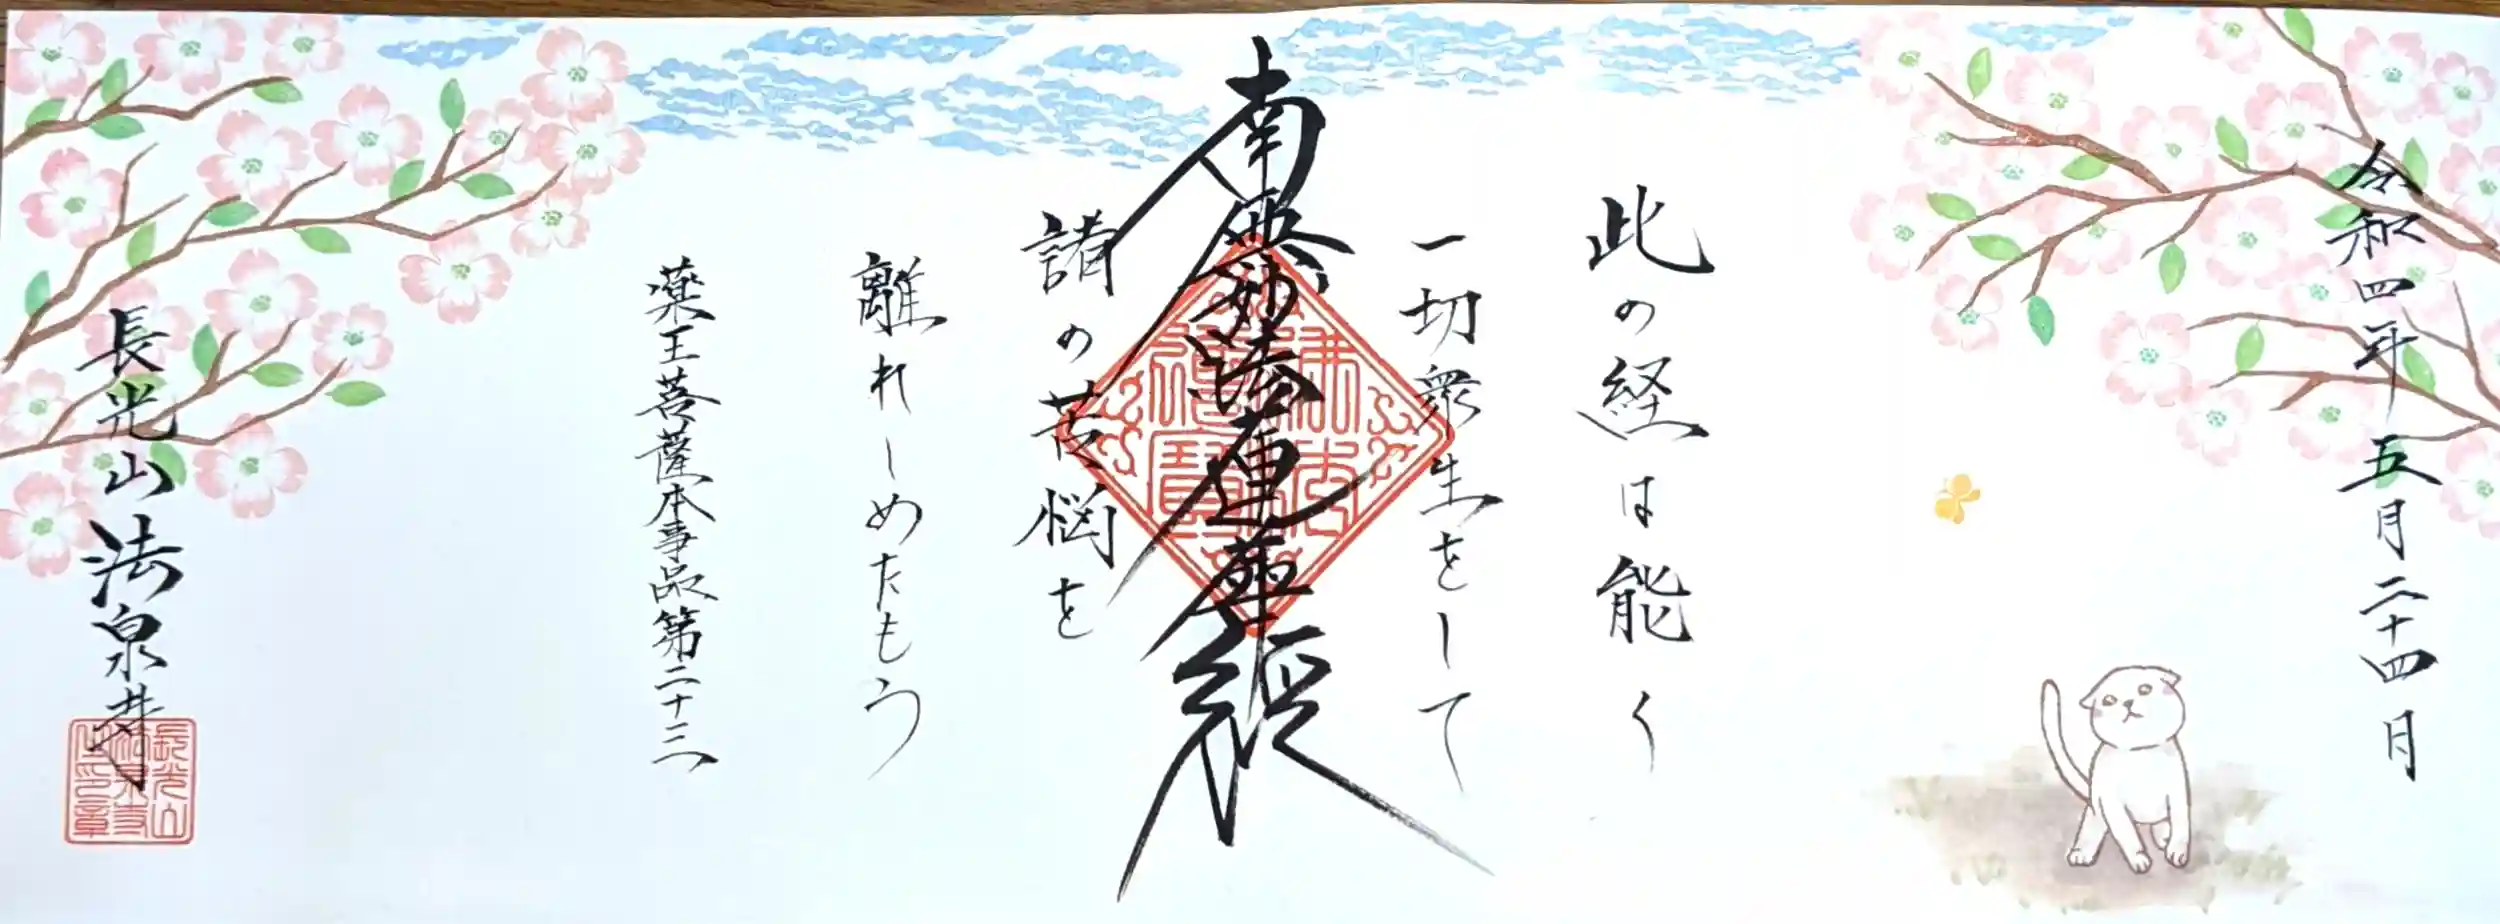 令和四年五月二十四日
此の経は能く
一切衆生をして
南無妙法蓮華経
諸の苦悩を
離れしめたもう
薬王菩薩本事品第二十三
長光山法泉寺